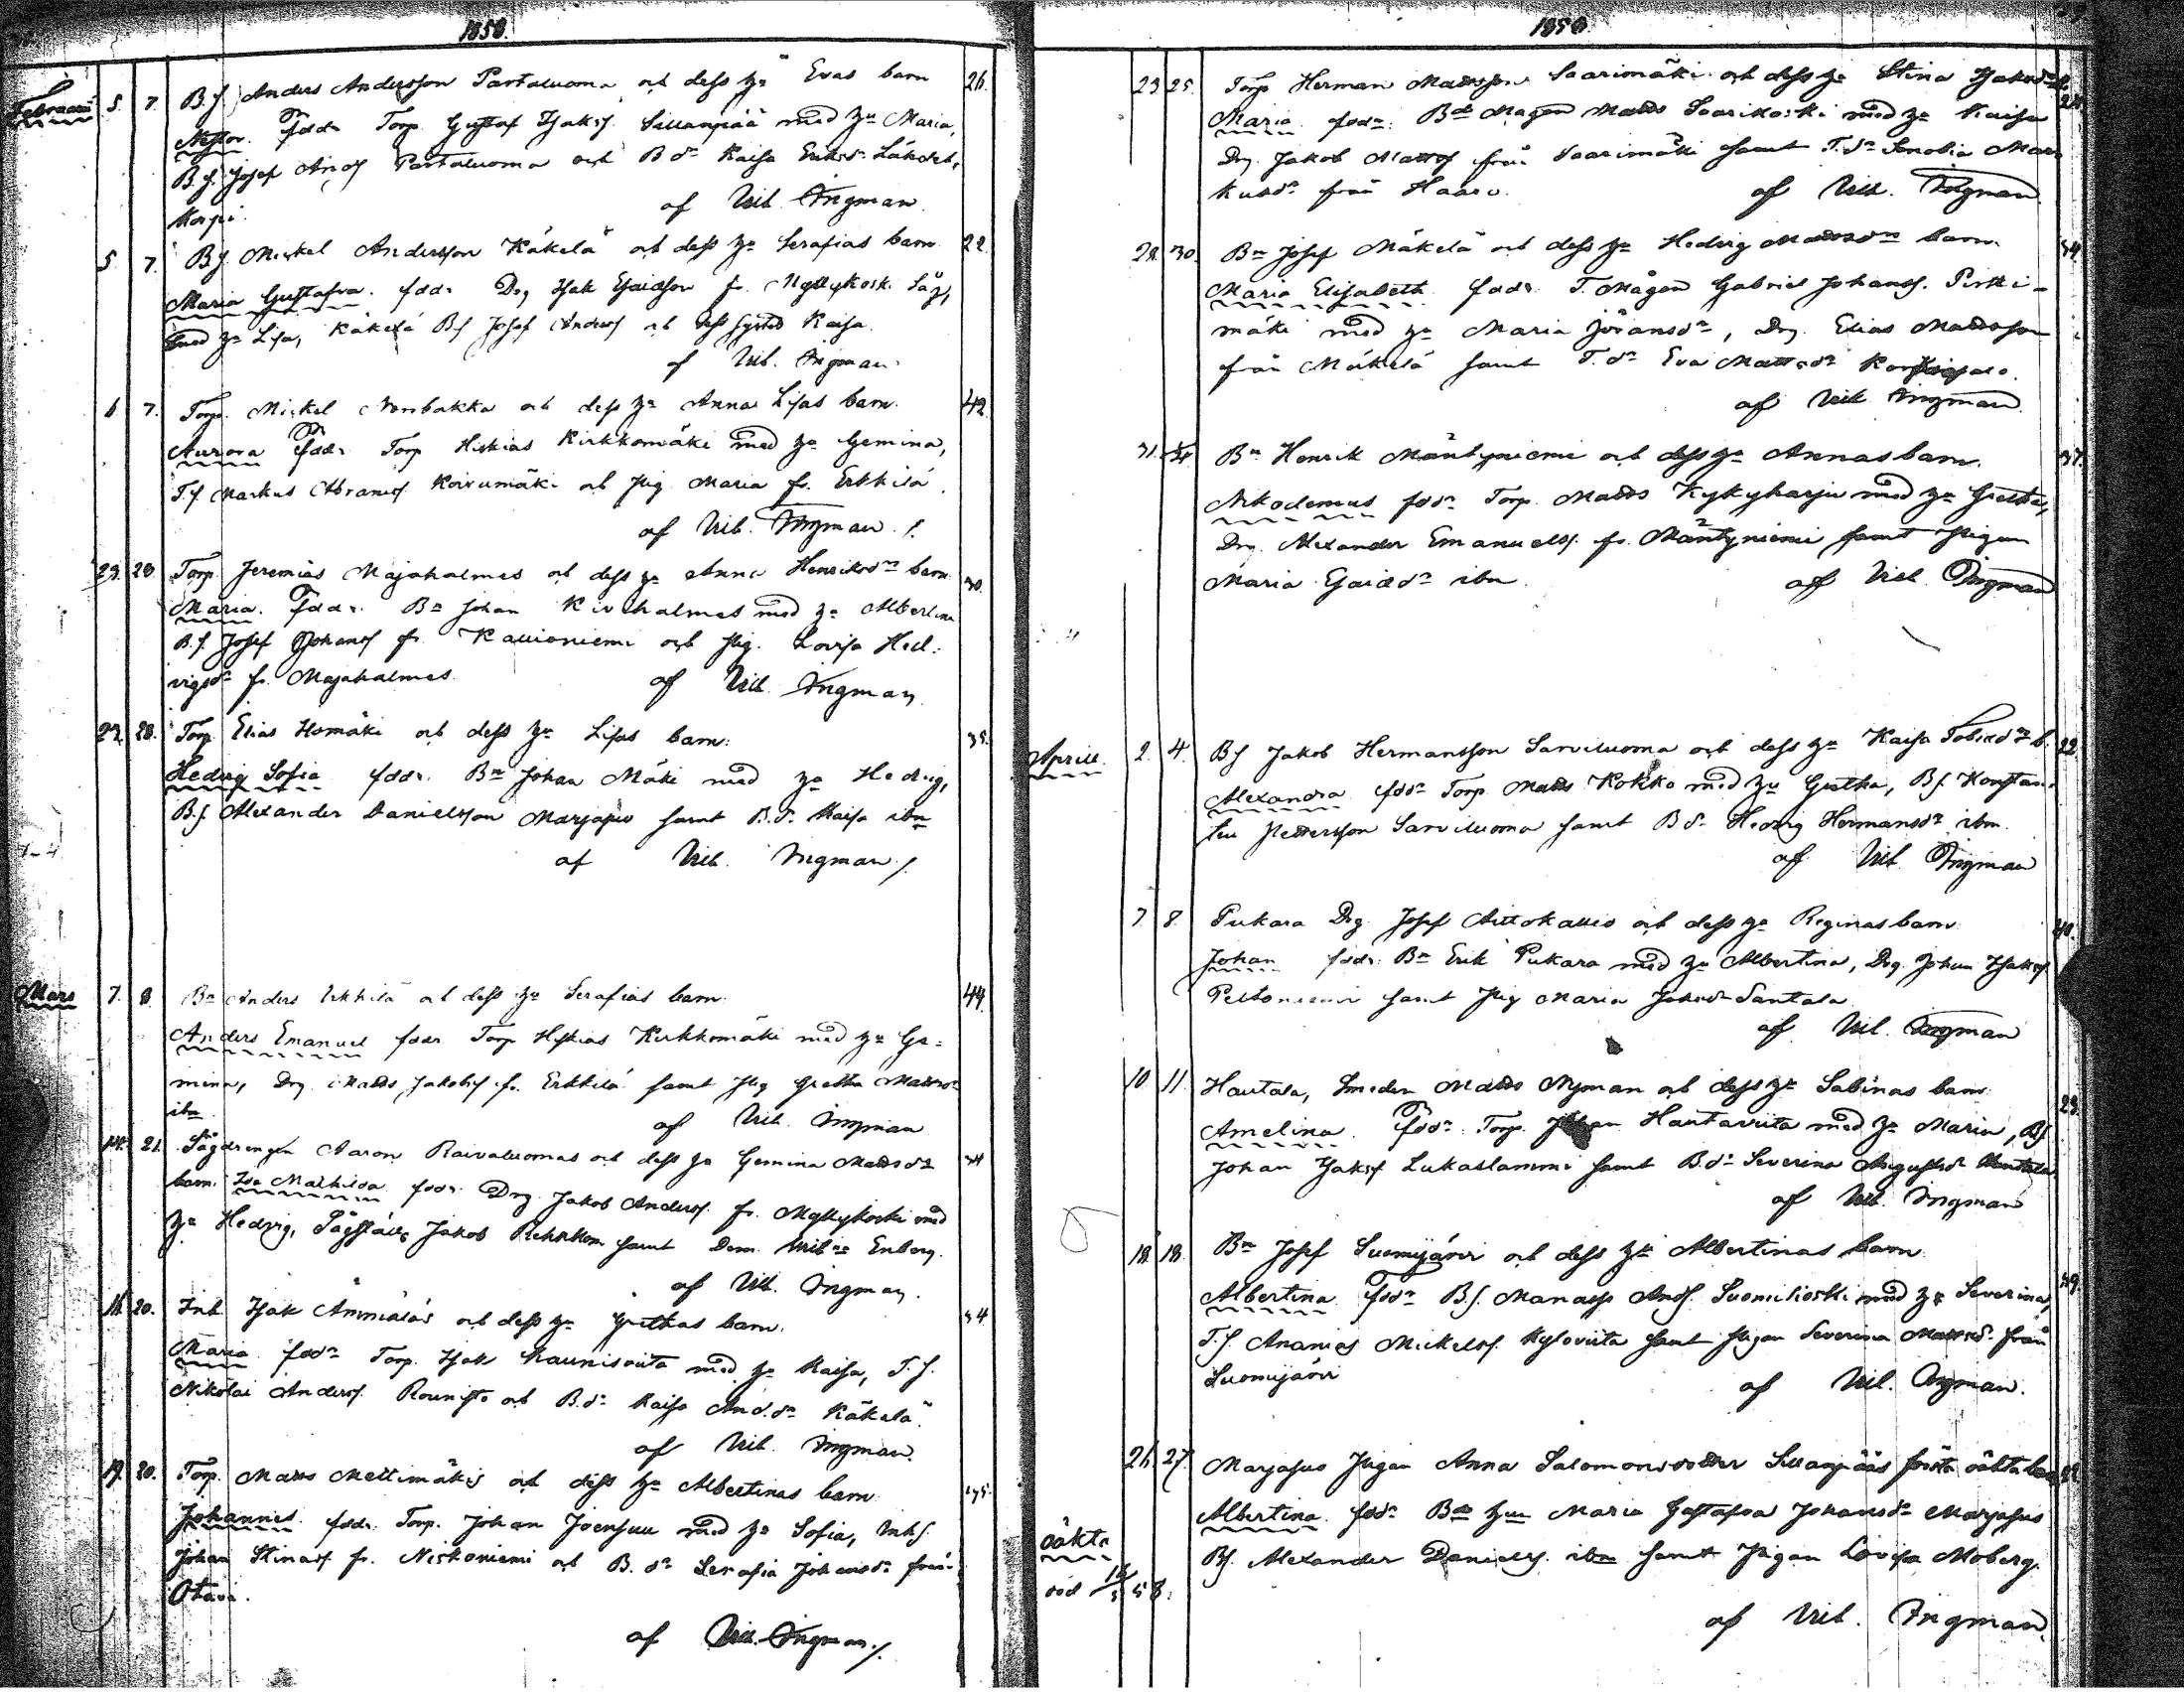 1858.
Februarii 5. 7. B.S. Anders Andersson Partaluoma och dess hu Evas barn 26.
Nestor. faddr Torp. Gustaf Isaksf. Sillanpää med hu Maria,
B.S. Josef Andf Partaluoma och B.dr Kaisa Eriksdr Lähdekorpi.
af Vic. Ingman.
5 7. B.S. Mickel Andersson Käkelä och dess hu Serafias barn 22.
Maria Gustafva. faddr Drg Isak Esaiasson fr. Myllykoski Såg,
med hu Lisa, Käkelä B.S. Josef Andersf och dess syster Kaisa.
af Vic. Ingman.
6 7. Torp. Mickel och dess hu Anna Lisas barn. 42.
Aurora faddr Torp Hiskias Kirkkomäki med hu Gemina,
T.S. Markus Abramsf. Koivumäki och Pig. Maria fr. Erkkilä.
af Vic. Ingman.
23. 28. Torp. Jeremias Majahalmes och dess hu Anna Henriksdr barn 30.
Maria. faddr. Bn Johan Kivihalmes med hu Albertina
B.S. Josef Johansf fr. Kallioniemi och Pig. Lovisa Hed-
vigsdr fr. Majahalmes. af Vic. Ingman.
27. 28. Torp. Elias Homäki och dess hu Lisas barn: 35.
Hedvig Sofia faddr. Bn Johan Mäki med hu Hedvig,
B.S. Alexander Danielsson Marjapuo samt B.D. Kaisa ibm
af Vic. Ingman.
Mars 7. 8. Bn Anders Erkkilä och dess hu Serafias barn. 44.
Anders Emanuel faddr Torp Hiskias Kirkkomäki med hu Ge-
mina, Drg. Matts Jakobsf. fr. Erkkilä samt Pig Gretha Mattsdr
ibm. af Vic. Ingman
14. 21. Sågdrengen Aaron Raivaluomas och dess hu Gemina Mattsdr 34
barn. Ida Mathilda. faddr. Drg. Jakob Andersf. fr. Myllykoski med
hu Hedvig, Jakob samt Dem. Enberg.
af Vic. Ingman.
16. 20. Inh. Isak Ämmäläs och dess hu Grethas barn. 34
Maria. faddr Torp. Isak Kauniswiita med hu Kaisa, T.S.
Nikolai Andersf. och B.dr Kaisa And.dr Käkelä.
af Vic. Ingman.
19. 20. Torp. Matts Mettimäkis och dess hu Albertinas barn
Johannes. faddr. Torp. Johan Joensuu med hu Sofia, Inh.S.
Johan Stinasf. fr. Niskoniemi och B.dr Serafia Johansdr från
Otava.
af Vic. Ingman.
1858.
23. 25. Torp Herman Mattsson Saarimäki och dess hu Stina Isaksdr b. 22.
Maria. faddr. Bde Mågen Matts Saarikoski med hu Kaisa
Drg. Jakob Mattsf från Saarimäki samt T.dr Senobia Mar-
kusdr från Haaro. af Vic. Ingman.
28. 30. Bn Josef Mäkelä och dess hu Hedvig Mattsdrs barn. 34.
Maria Elisabeth. faddr. T. Mågen Gabriel Johansf. Pirtti-
mäki med hu Maria Jöransdr, Drg. Elias Mattsson
från Mäkelä samt T.dr Eva Mattsdr
af Vic. Ingman.
31. Bn Henrik Mäntyniemi och dess hu Annas barn. 37.
Nikodemus fddr. Torp. Matts Kykyharju med hu Gretha,
Drg. Alexander Emanuelsf. fr. Mäntyniemi samt Pigan
Maria Esaiædr ibm. af Vic. Ingman
Aprill. 2. 4. B.S. Jakob Hermansson Sarviluoma och dess hu Kaisa Tobiasdr b. 22.
Alexandra fddr Torp. Matts Kokko med hu Gretha, B.S. Konstan-
tin Pettersson Sarviluoma samt B.dr Hedvig Hermansdr ibm.
af Vic. Ingman
7. 8. Pukara Drg. Josef Aittokallio och dess hu Reginas barn 40.
Johan faddr. Bn Erik Pukara med hu Albertina, Drg. Johan Isaksf.
Peltoniemi samt Pig Maria Jakobsdr Santala.
af Vic. Ingman
10 11. Hautala, Smeden Matts Nyman och dess hu Sabinas barn 23.
Amelina. fddr. Torp. Johan Hautaviita med hu Maria, B.S.
Johan Isaksf Lukaslammi samt B.dr Severina Augustsdr Hautala.
af Vic. Ingman
18. 18. Bn Josef Suomijärvi och dess hu Albertinas barn 39.
Albertina. fddr B.S. Manasse Andf. Suomikoski med hu Severina,
T.S. Ananias Mickelsf. Kyloviita samt Pigan Severina Mattsdr från
Suomijärvi af Vic. Ingman.
26. 27. Marjapuo Pigan Anna Salomonsdotter Sillanpääs första oäkta barn
Albertina. fddr Bde hun Maria Gustafva Johansdr Marjapuo
B.S. Alexander Danielsf. ibm samt Pigan Lovisa Moberg.
oäkta
död 58. af Vic. Ingman.